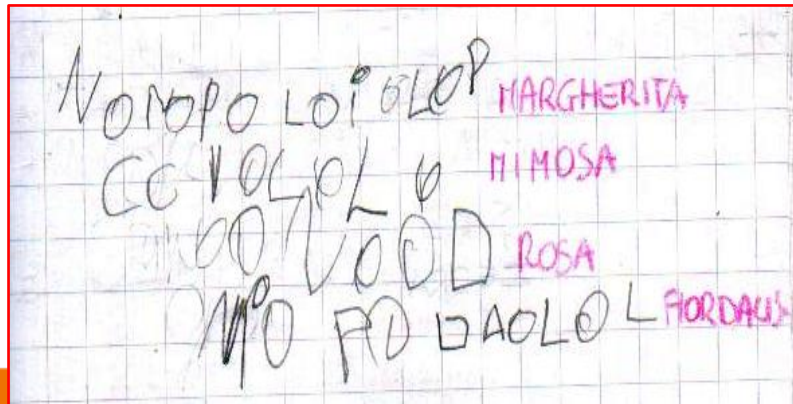 NONOPO LOi OLOP MARGHERITA
CC VOLOL O MIMOSA
OO NOOD ROSA
NiO PD DAOLOL FIORDALIS